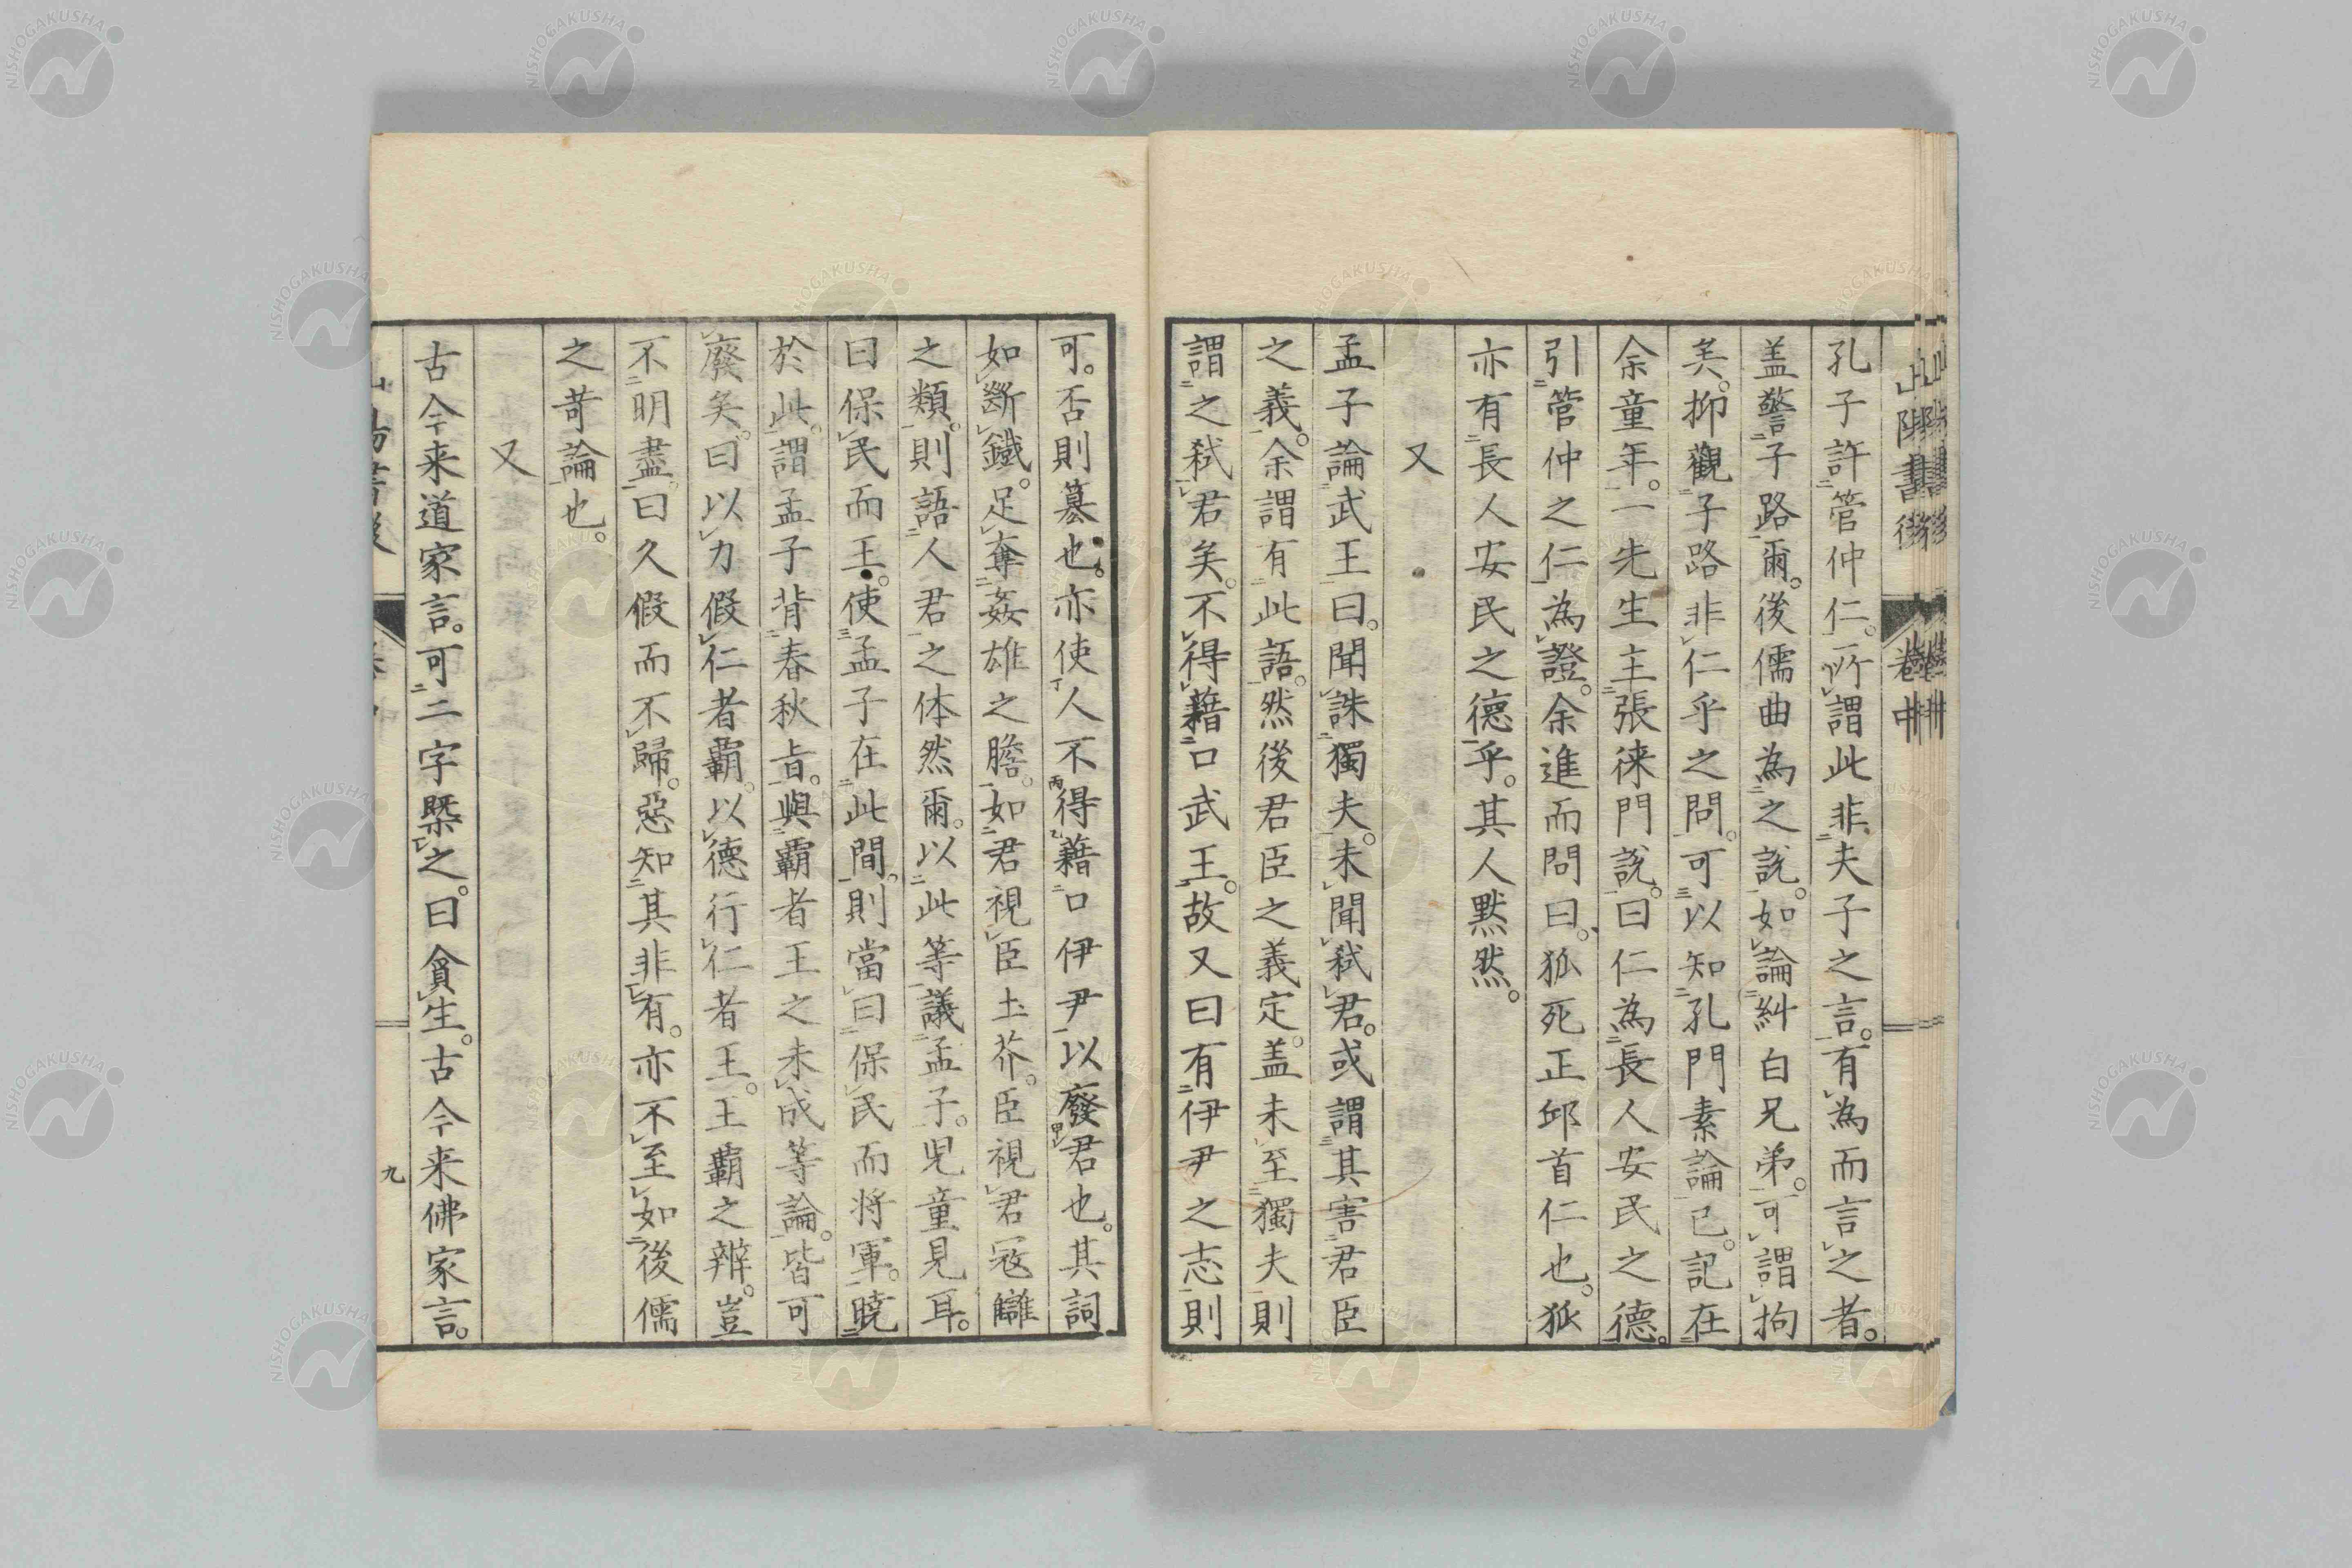 孔子許管仲仁。所謂此非夫子之言。有為而言之者。
盖警子路爾。後儒曲為之說。如論糾白兄弟。可謂拘
矣。抑觀子路非仁乎之問。可以知孔門素論已。記在
余童年。一先生主張徠門說。曰仁為長人安民之德。
引管仲之仁為證。余進而問曰、狐死正邱首仁也。狐
亦有長人安民之德乎。其人默然。
又
孟子論武王曰。聞誅獨夫。未聞弒君。或謂其害君臣
之義。余謂有此語。然後君臣之義定。盖未至獨夫則
謂之弒君矣。不得藉口武王。故又曰有伊尹之志則
可。否則簒也。亦使人不得藉口伊尹以廢君也。其詞
如斷鐵。足奪姦雄之膽。如君視臣土芥。臣視君寇讎
之類。則語人君之体然爾。以此等議孟子。児童見耳。
曰保民而王。使孟子在此間。則當曰保民而将軍。曉
於此。謂孟子背春秋旨。與霸者王之未成等論。皆可
廢矣。曰以力假仁者霸。以德行仁者王。王霸之辨。豈
不明盡。曰久假而不歸。惡知其非有。亦不至如後儒
之苛論也。
又
古今来道家言。可二字槩之。曰貪生。古今来佛家言。
山陽書後
卷中
九
NISHOGAKUSHA